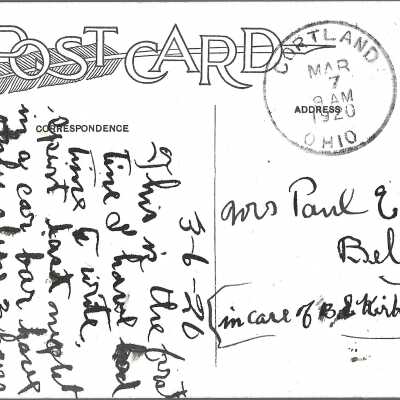 POST CARD
CORTLAND
MAR
7
8 AM
1920
OHIO
CORRESPONDENCE
ADDRESS
3-6-20
This is the first
time I have had
time to write.
spent last night
in a car bar have
Mrs Paul E
Bel
in care of B E Kirb